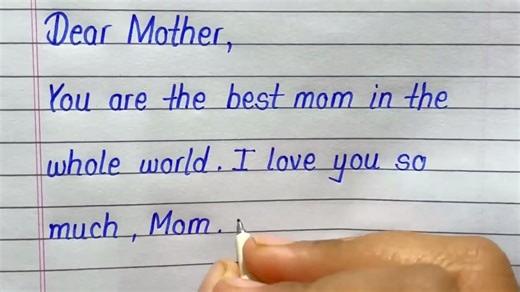 Dear Mother,
You are the best mom in the
whole world. I love you so
much, Mom.